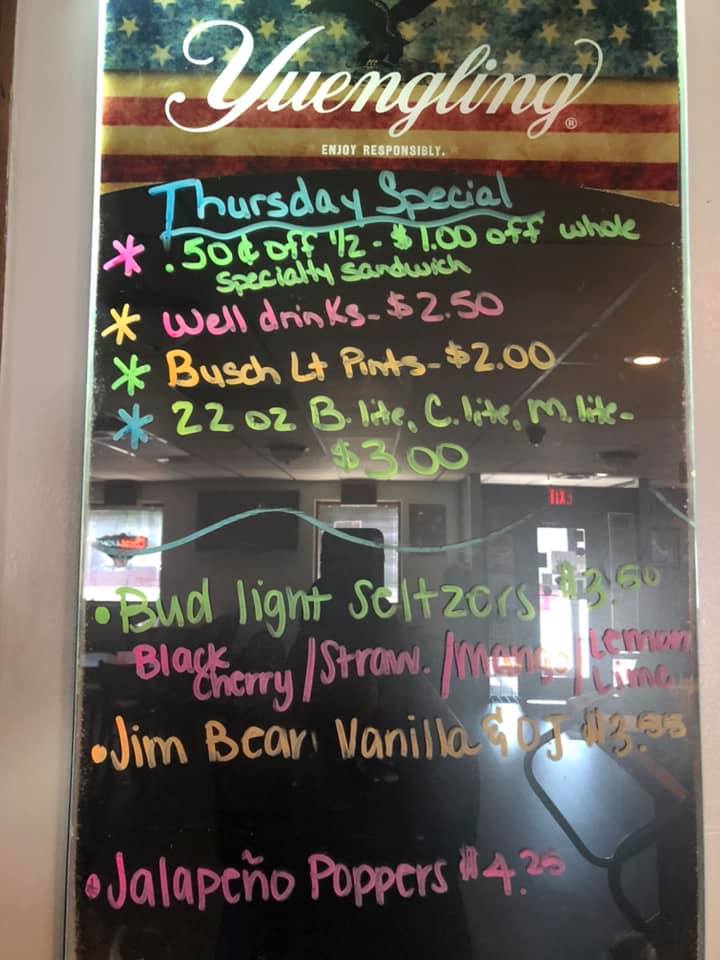 Yuengling®
ENJOY RESPONSIBLY.
Thursday Special
* .50¢ off 1/2 - $1.00 off whole
specialty sandwich
* Well drinks - $2.50
* Busch Lt Pints - $2.00
* 22 oz B. lite, C. lite, M. lite -
$3.00
• Bud light Seltzers $3.50
Black Cherry / Straw. / Mango / Lemon Lime
• Jim Bean Vanilla & OJ $3.55
• Jalapeño Poppers $4.25